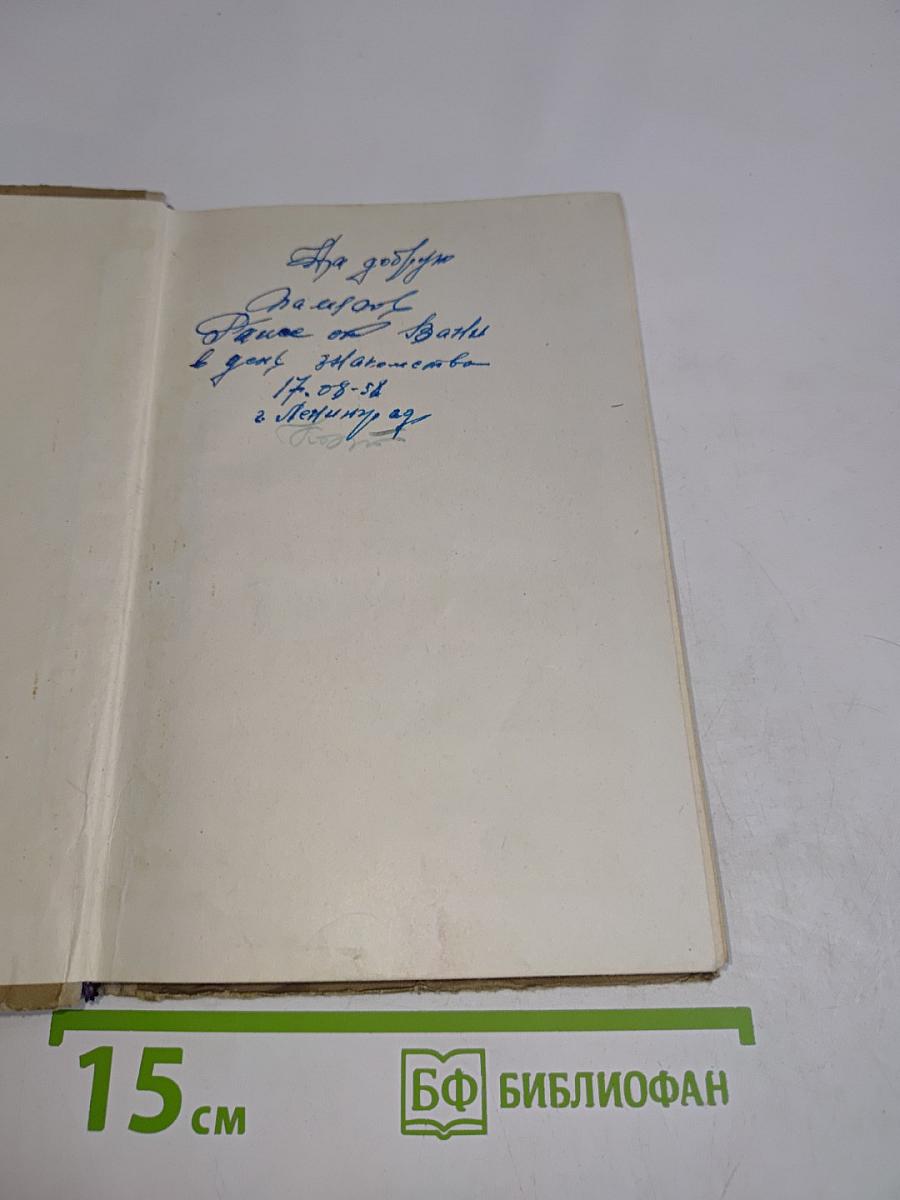 На добрую
память
Рансе от Вани
в день знакомства
17.08-58
г Ленинград
15 см
БФ БИБЛИОФАН